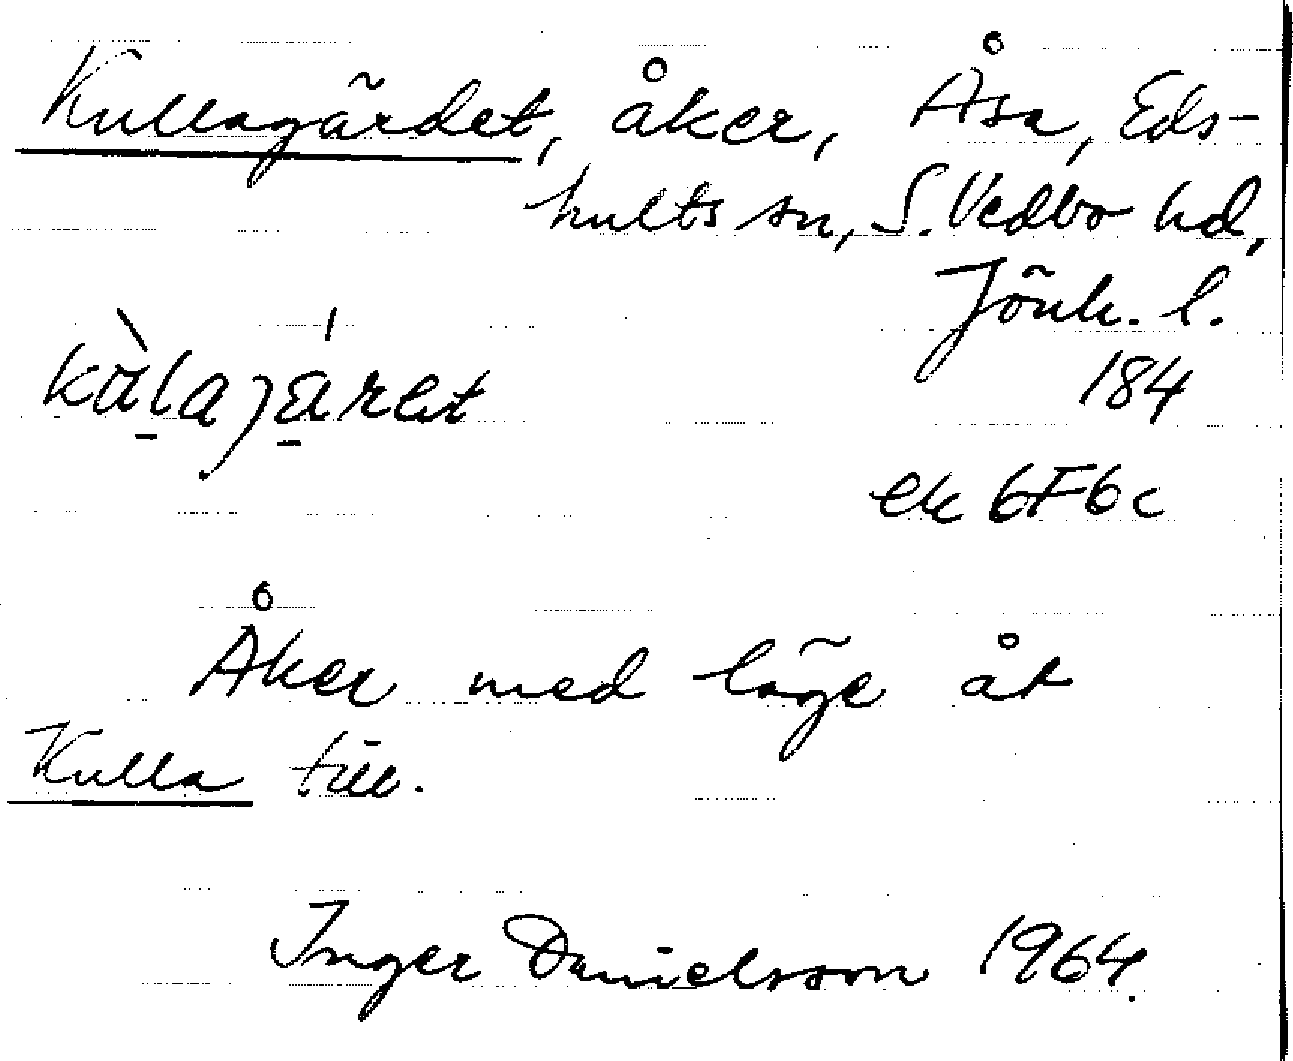 Kullagärdet, åker, Åsa, Eds-
hults sn, S. Vedbo hd,
Jönk. l.
184
ek 6F6c
Åker med läge åt
Kulla till.
Inger Danielsson 1964.